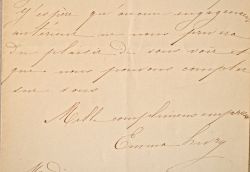 J'espère qu'aucun engagement
antérieur ne nous privera
du plaisir de vous voir et
que nous pouvons compter
sur vous
Mille compliments empressés
Emma Livry